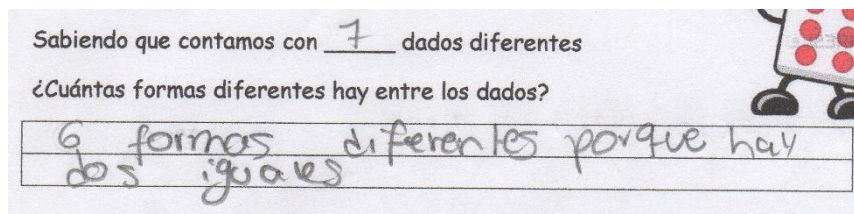 Sabiendo que contamos con 7 dados diferentes
¿Cuántas formas diferentes hay entre los dados?
6 formas diferentes porque hay
dos iguales